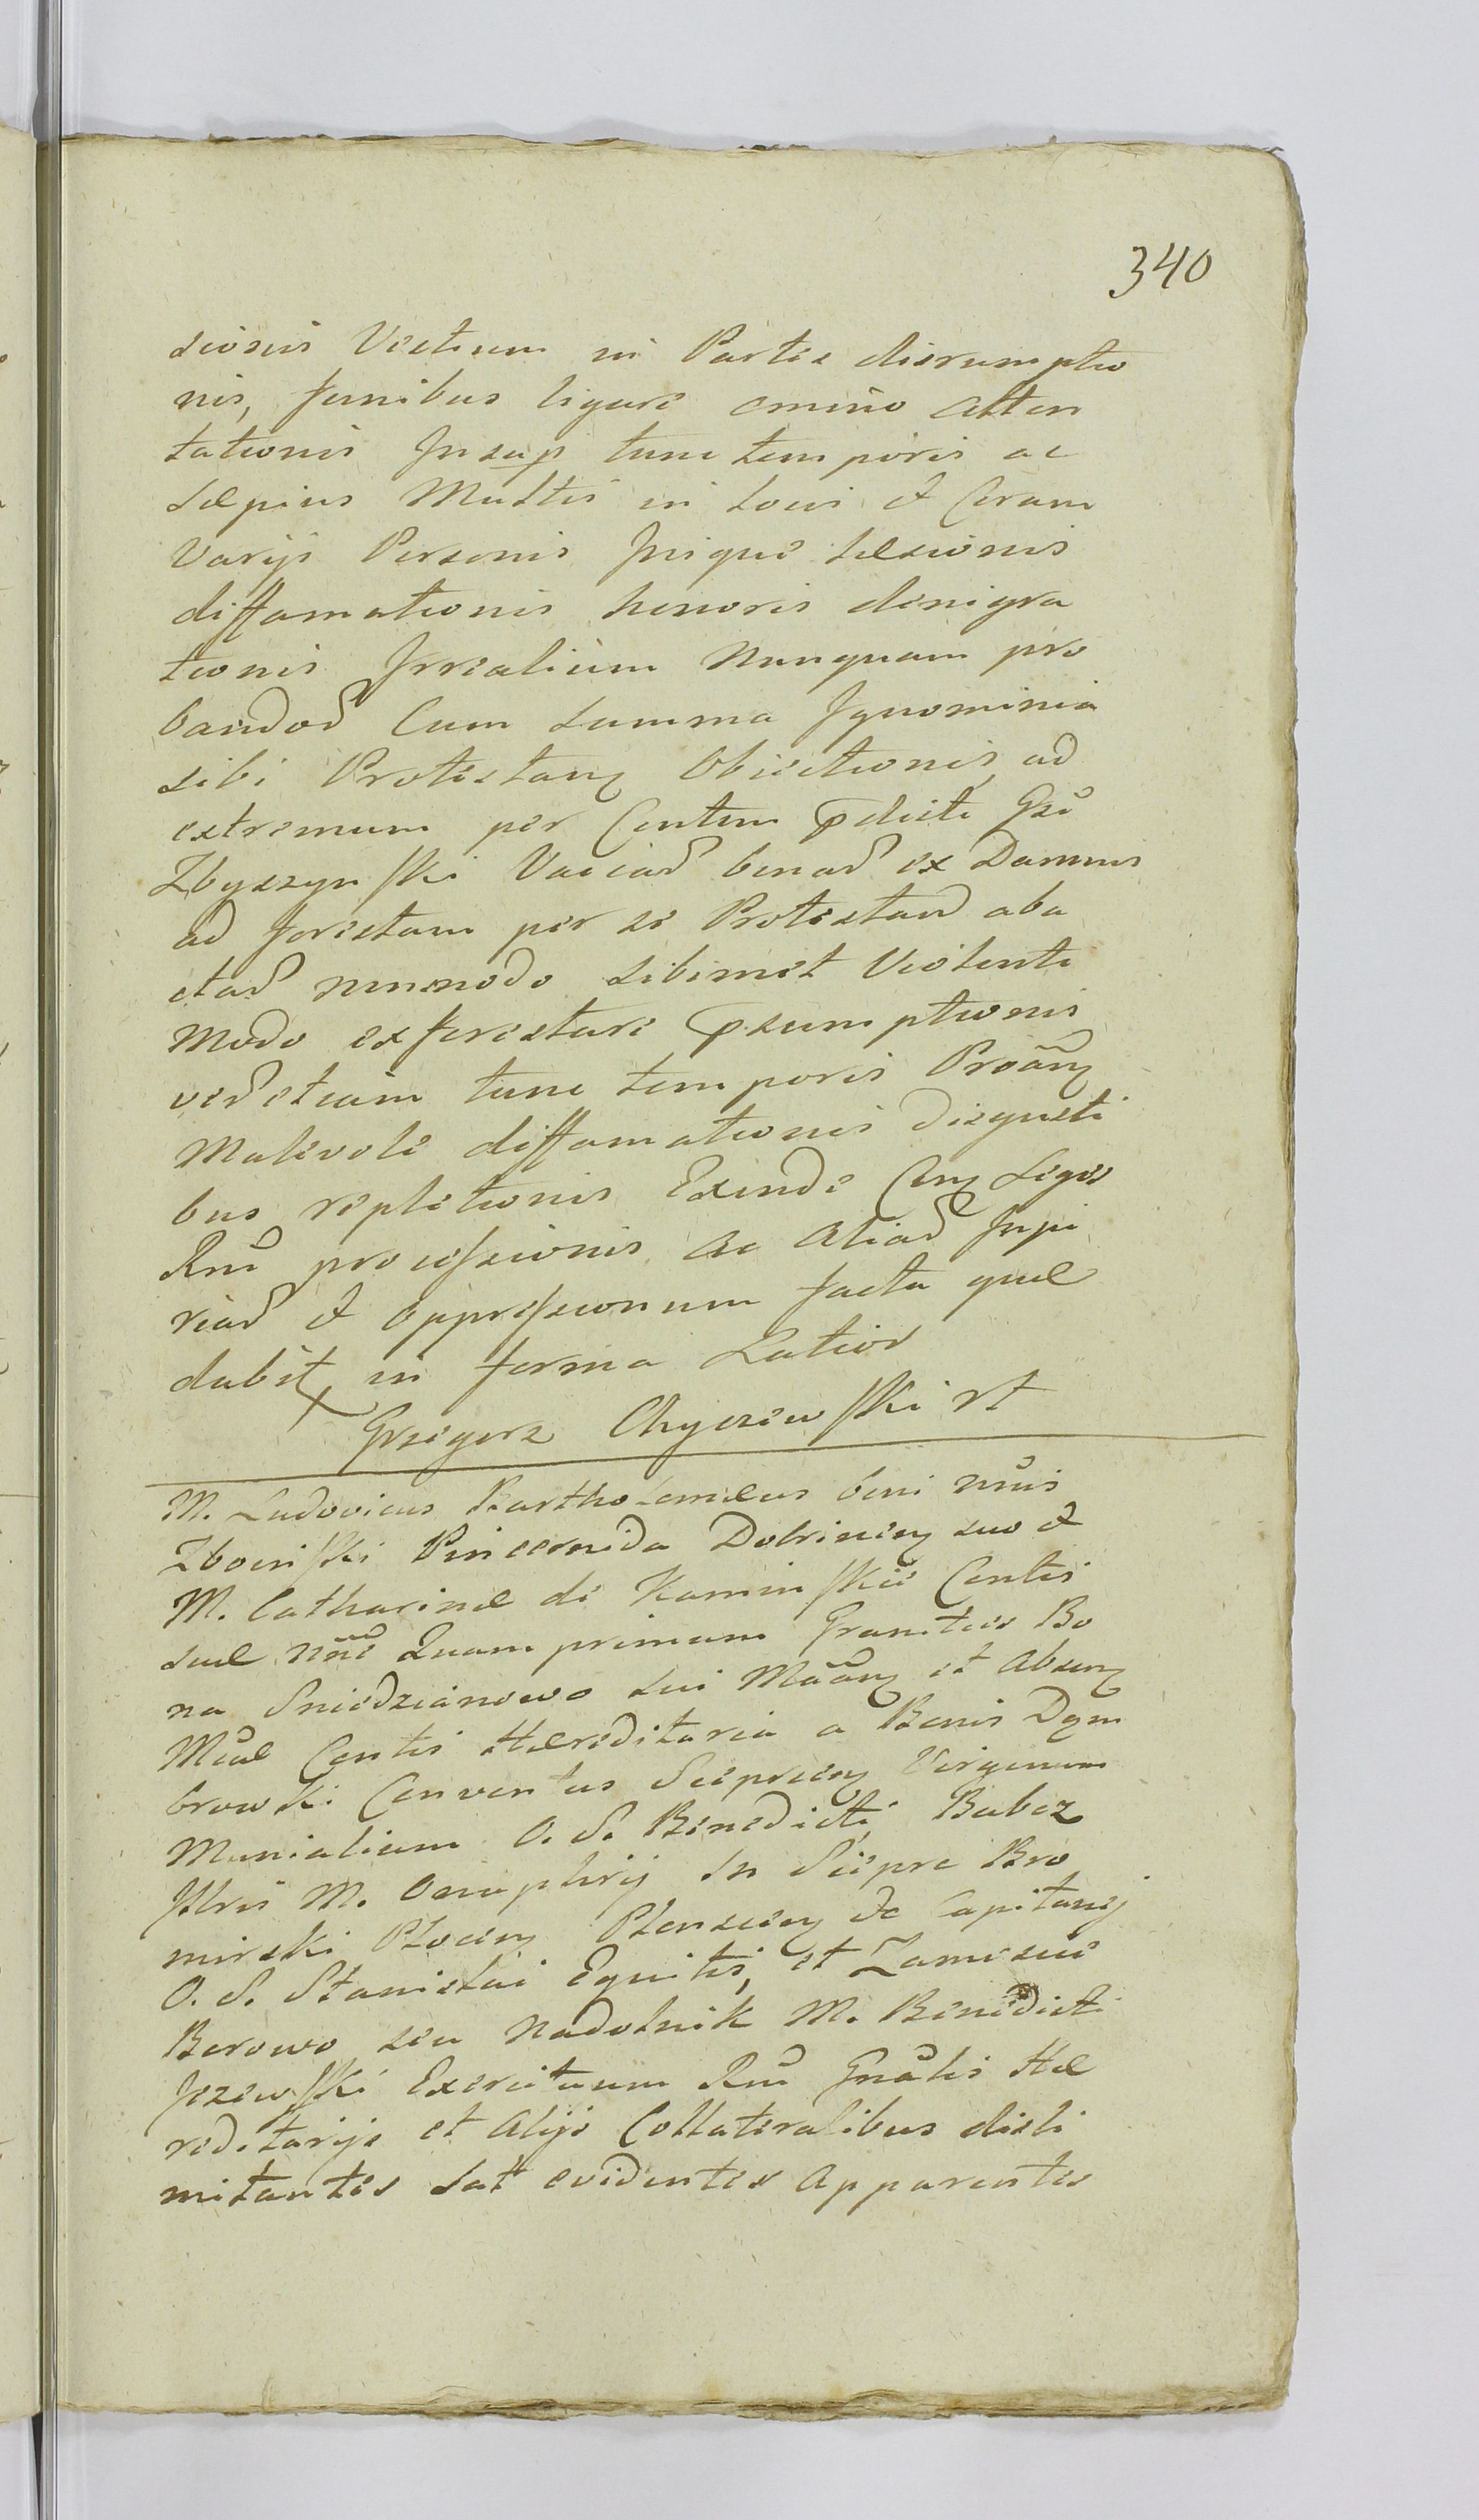 340
scionis Vectium in Partes disrumptio
nis, funibus ligare omĩno atten
tationis Insup tunc temporis ac
sæpius Multis in Locis et Coram
Varijs Personis Inique Læsionis
diffamationis honoris denigra
tionis Irrealium Nunquam pro
bandor Cum summa Ignominia
sibi Protestanɀ Obiectionis, ad
extremum per Contem pdicti Gsi
Zbyszynski Vaccar binar ex Damnis
ad forestam per se Protestand aba
ctar nunmodo Sibimet Violente
Modo ex forestare psumptionis
verˢ etiam tunc temporis Proãnɀ
Malevole diffamationis disgusti
bus repletionis Exinde Conɀ Leges
Rni processionis Ac Aliar Inju
riar et oppressionum facta quæ
dabit in forma Latior
Grzegorz Chyczewski rt
M. Ludovicus Bartholomæus bini nõis
Zboinski Pincernida Dobrinenɀ suo et
M. Catharinæ de Kaminskie Contis
suæ nñe Quam primum Granities Bo
na Sniedzianowo sui Mãanɀ et Absenɀ
Mũae Contis Hæreditaria a Bonis Dĝm
browki Conventus Sieprcenɀ Virginum
Monialium O. S. Benedicti, Babez
Illris M. Onuphrij in Sieprc Bro
mirski Plocenɀ Plonscenɀ &c Capitanej
O. S. Stanislai Equitis, et Zamoscie
Borowo seu Nadolnik M. Benedicti
Jezewski Exercituum Rni Gnãlis Hæ
reditarijs et Alijs Collateralibus disli
mitantes Sat evidentes Apparentes